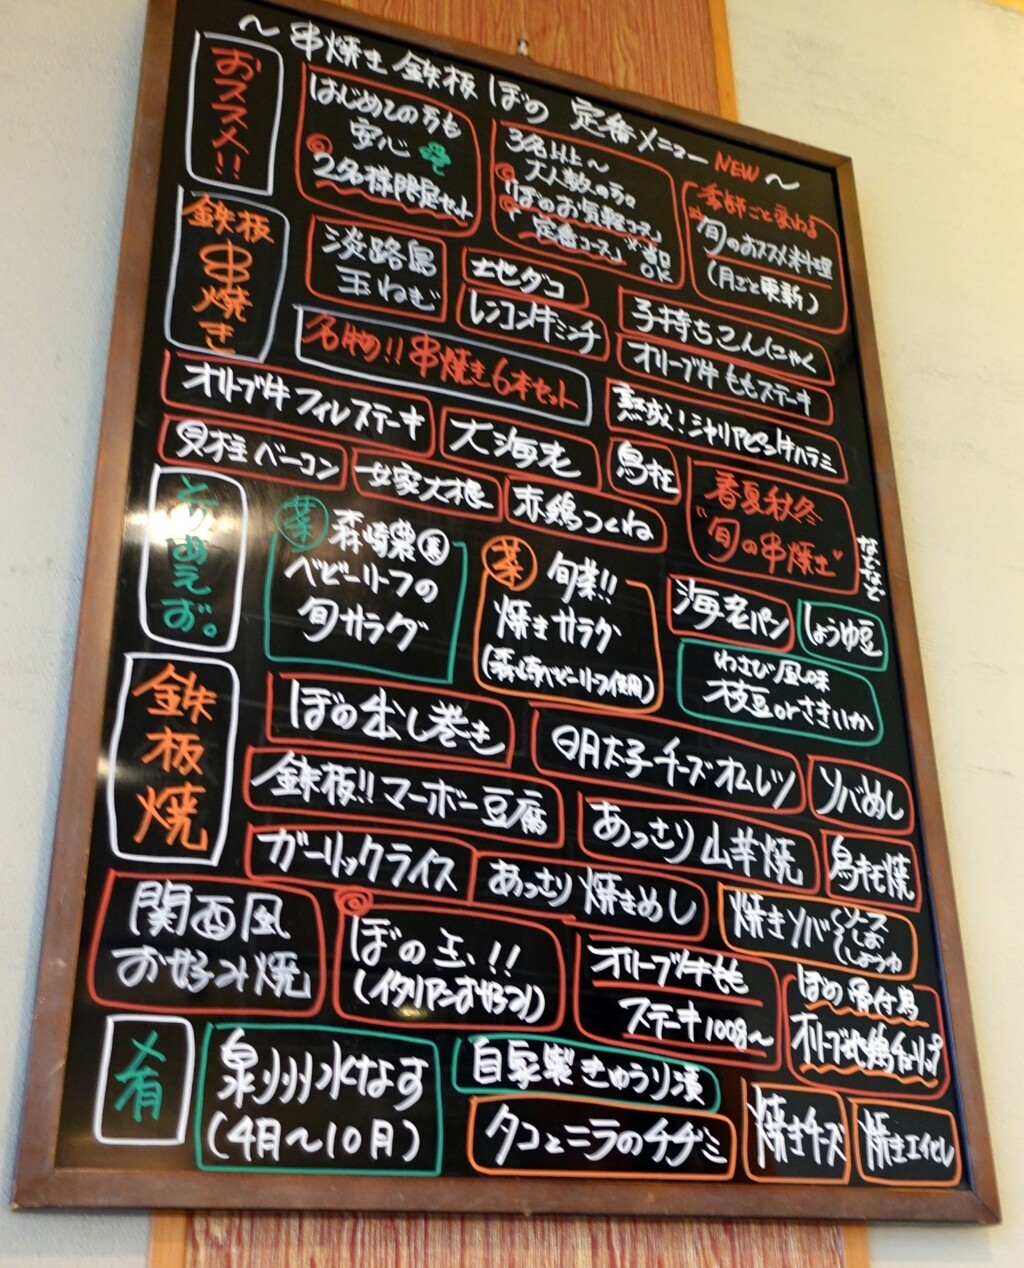 ～ 串焼き 鉄板 ぼの 定番メニュー NEW ～
おススメ!!
はじめての方も
安心
2名様限定セット
3名以上～
大人数の方
「ぼのお気軽コース」
「定番コース」
OK
季節ごと変わる
旬のおススメ料理
(月ごと更新)
鉄板
串焼き
淡路島
玉ねぎ
地ダコ
レンコンキミンチ
子持ちこんにゃく
名物!! 串焼き6本セット
オリーブ牛ももステーキ
オリーブ牛フィレステーキ
大海老
熟成!シャリアピン牛ハラミ
貝柱ベーコン
女家大根
赤鶏つくね
鳥柱
春夏秋冬
"旬の串焼き"
などなど
とりあえず。
菜 森崎農園
ベビーリーフの
旬サラダ
菜 旬菜!!
焼きサラダ
(森崎ベビーリーフ使用)
海老パン
しょうゆ豆
わさび風味
枝豆orさきいか
鉄板焼
ぼの出し巻き
明太子チーズオムレツ
ソバめし
鉄板!!マーボー豆腐
あっさり山芋焼
鳥モモ焼
ガーリックライス
あっさり焼きめし
焼きソバ
ソース
しお
しょうゆ
関西風
お好み焼
ぼの玉!!
(イタリアンお好み)
オリーブ牛もも
ステーキ100g～
ぼの骨付鳥
オリーブ地鶏チューリップ
肴
泉州水なす
(4月～10月)
自家製きゅうり漬
タコとニラのチヂミ
焼きチーズ
焼きエイヒレ